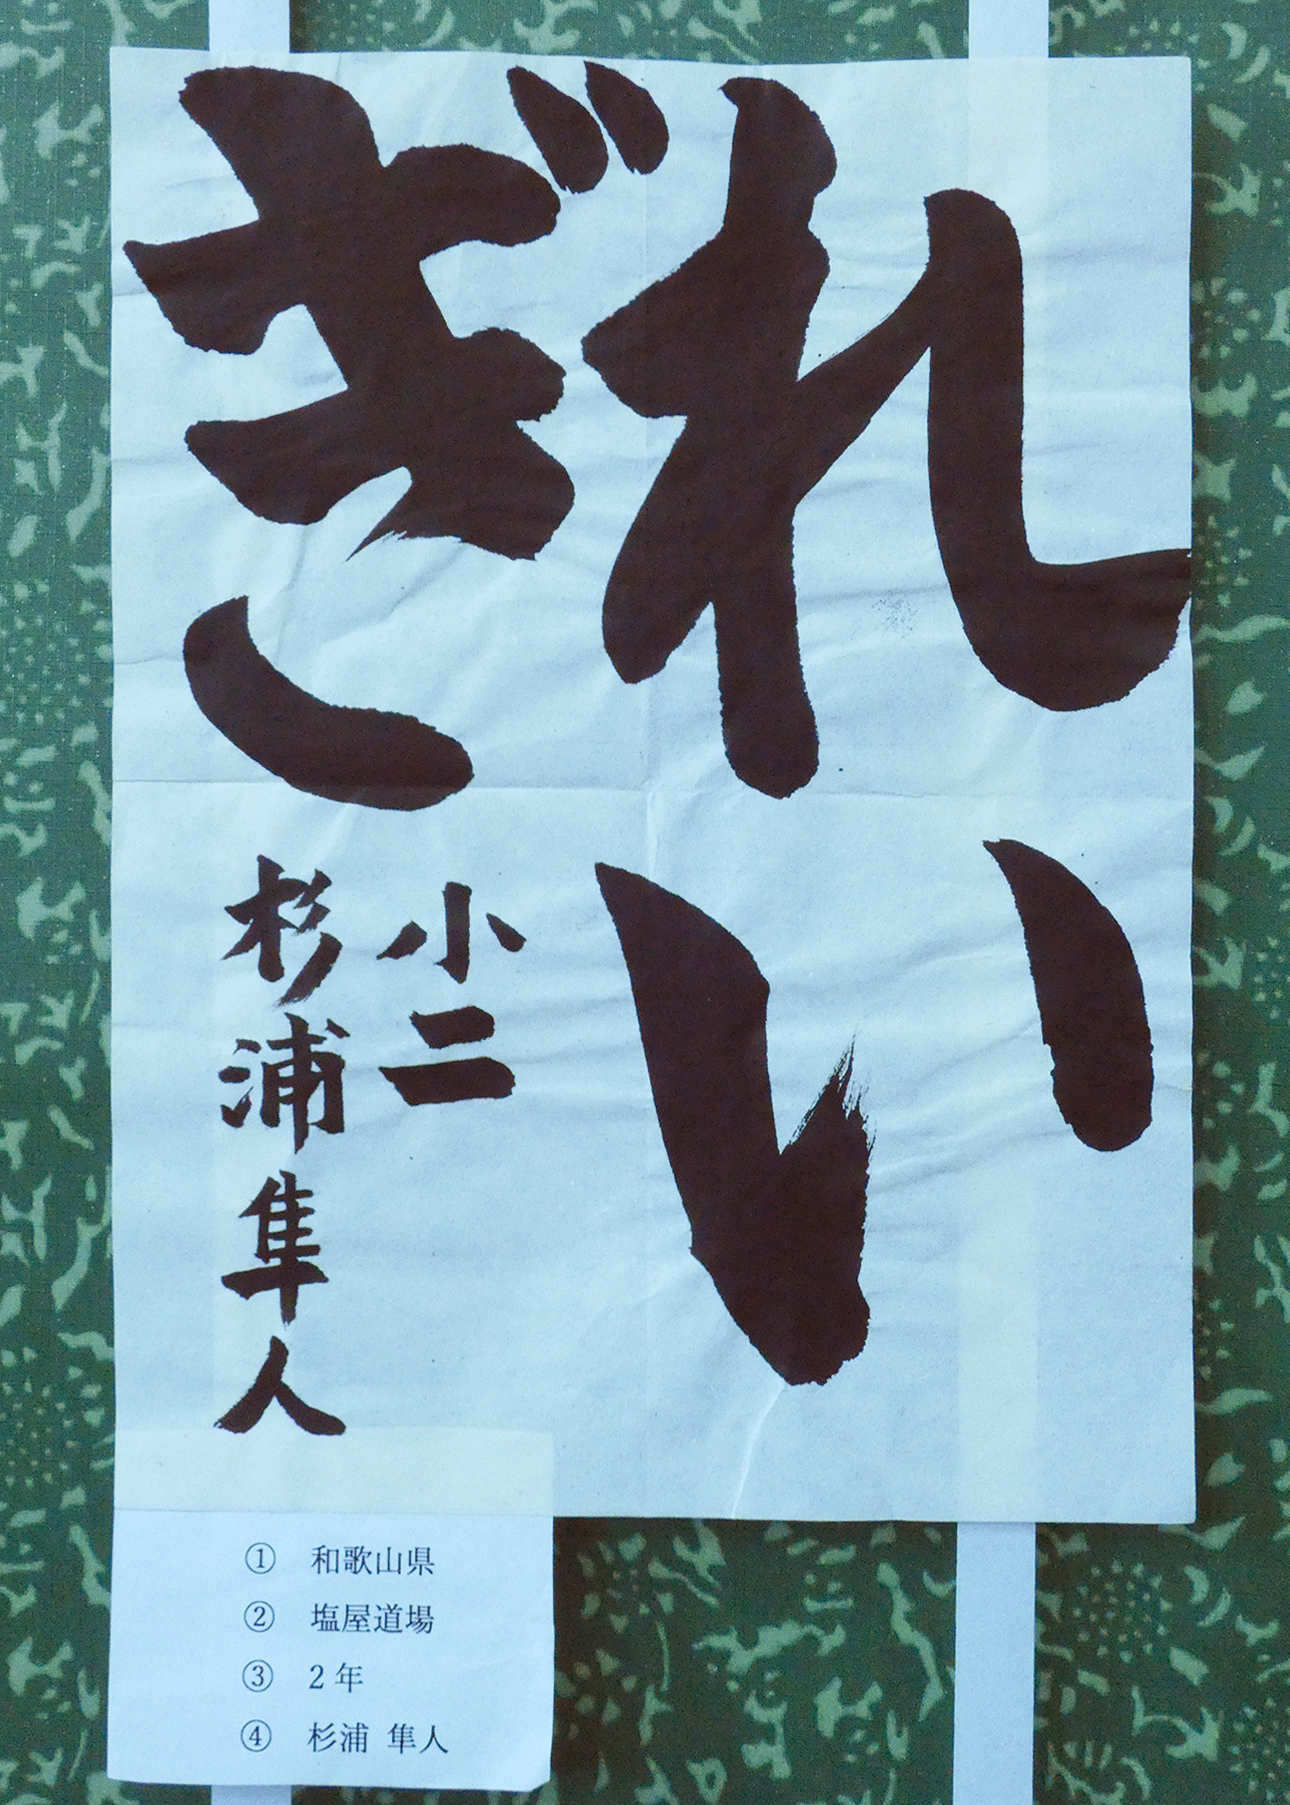 れい
ぎ
小二
杉浦隼人
① 和歌山県
② 塩屋道場
③ 2年
④ 杉浦 隼人